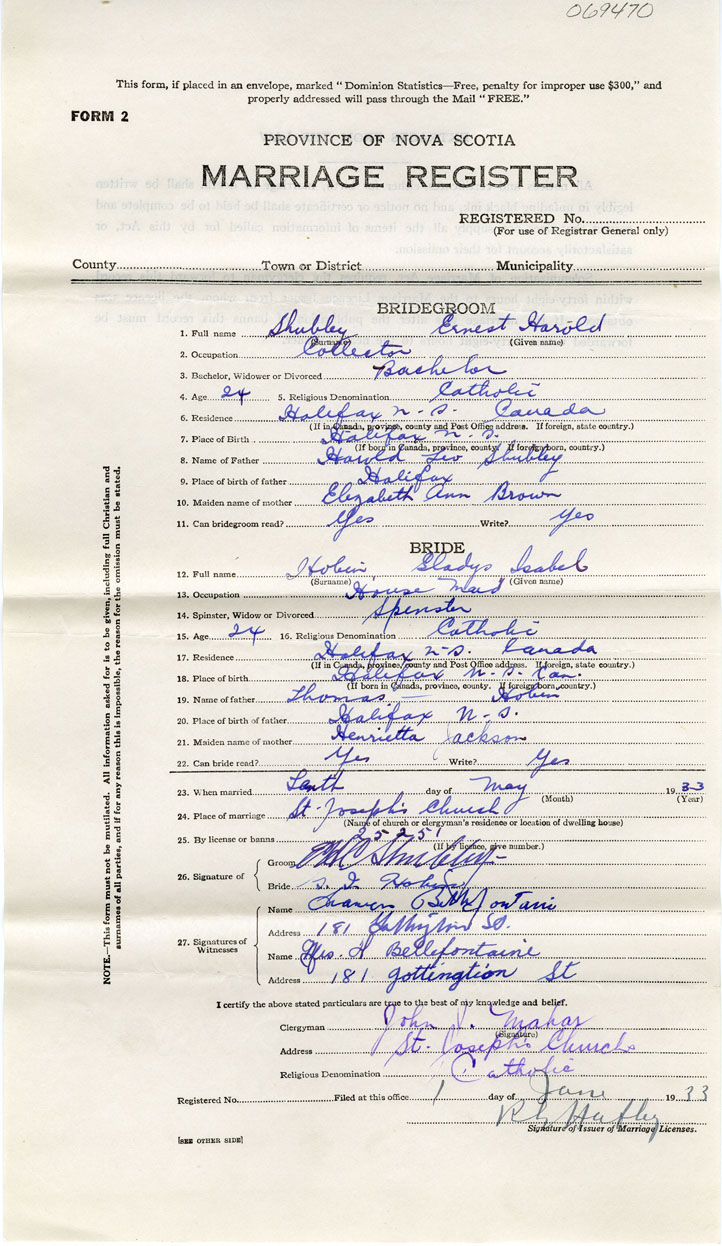 069470
This form, if placed in an envelope, marked "Dominion Statistics—Free, penalty for improper use $300," and
properly addressed will pass through the Mail "FREE."
FORM 2
PROVINCE OF NOVA SCOTIA
MARRIAGE REGISTER
REGISTERED No.
(For use of Registrar General only)
County Town or District Municipality
BRIDEGROOM
1. Full name Shubley Ernest Harold
(Surname) (Given name)
2. Occupation Collector
3. Bachelor, Widower or Divorced Bachelor
4. Age 24 5. Religious Denomination Catholic
6. Residence Halifax N-S. Canada
(If in Canada, province, county and Post Office address. If foreign, state country.)
7. Place of Birth Halifax N.S.
(If born in Canada, province, county. If foreign born, country.)
8. Name of Father Harold Leo Shubley
9. Place of birth of father Halifax
10. Maiden name of mother Elizabeth Ann Brown
11. Can bridegroom read? Yes Write? Yes
BRIDE
12. Full name Hobin, Gladys Isabel
(Surname) (Given name)
13. Occupation House Maid
14. Spinster, Widow or Divorced Spinster
15. Age 24 16. Religious Denomination Catholic
17. Residence Halifax N-S. Canada
(If in Canada, province, county and Post Office address. If foreign, state country.)
18. Place of birth Halifax N.S. Can.
(If born in Canada, province, county. If foreign born, country.)
19. Name of father Thomas — Hobin
20. Place of birth of father Halifax N-S.
21. Maiden name of mother Henrietta Jackson
22. Can bride read? Yes Write? Yes
23. When married Tenth day of May 1933
(Month) (Year)
24. Place of marriage St-Joseph's Church
(Name of church or clergyman's residence or location of dwelling house)
25. By license or banns 25251
(If by licence, give number.)
26. Signature of
Groom Shubley
Bride Hobin
27. Signatures of Witnesses
Name Bellefontaine
Address 181 St.
Name Mrs. H Bellefontaine
Address 181 Gottingtion St
I certify the above stated particulars are true to the best of my knowledge and belief.
Clergyman John J. Mahar
(Signature)
Address St. Joseph's Church
Religious Denomination Catholic
Registered No. Filed at this office 1 day of June 1933
Signature of Issuer of Marriage Licenses.
[SEE OTHER SIDE]
NOTE.—This form must not be mutilated. All information asked for is to be given, including full Christian and
surnames of all parties, and if for any reason this is impossible, the reason for the omission must be stated.